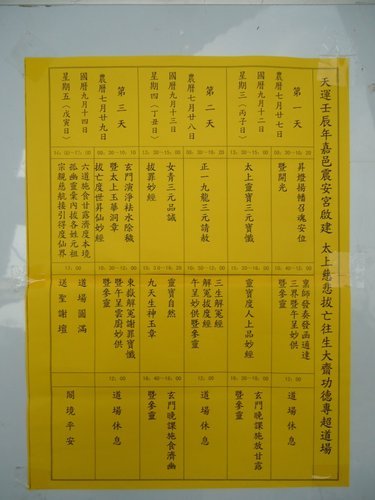 天運壬辰年嘉邑震安宮啟建 太上慈悲拔亡往生大齋功德專超道場
第一天
農曆七月廿七日
國曆九月十二日
星期三(丙子日)
昇燈揚幡召魂安位
暨開光
皇師發奏發函通達
三界暨午呈妙供
12:00
道場休息
太上靈寶三元寶懺
靈寶度人上品妙經
玄門晚課施放甘露
暨參靈
第二天
農曆七月廿八日
國曆九月十三日
星期四(丁丑日)
正一九龍三元請赦
三生解冤經
解冤拔度經
午呈妙供暨參靈
12:00
道場休息
女青三元品誡
拔罪妙經
靈寶自然
九天生神玉章
玄門晚課施食濟幽
暨參靈
第三天
農曆七月廿九日
國曆九月十四日
星期五(戊寅日)
玄門演淨祛水除穢
暨太上玉華洞章
拔亡度世昇仙妙經
東嶽解冤謝罪寶懺
暨午呈雲廚妙供
暨參靈
12:00
道場休息
六道施食甘露濟度本境
孤幽靈衆內拔各姓元祖
宗親慈航接引得度仙界
17:00
道場圓滿
送聖謝壇
闔境平安